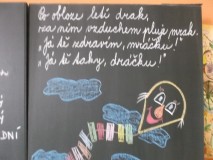 Po obloze letí drak,
za ním vzduchem pluje mrak.
„Já tě zdravím, mráčku!"
„Já tě taky, dráčku!"
DNÍ